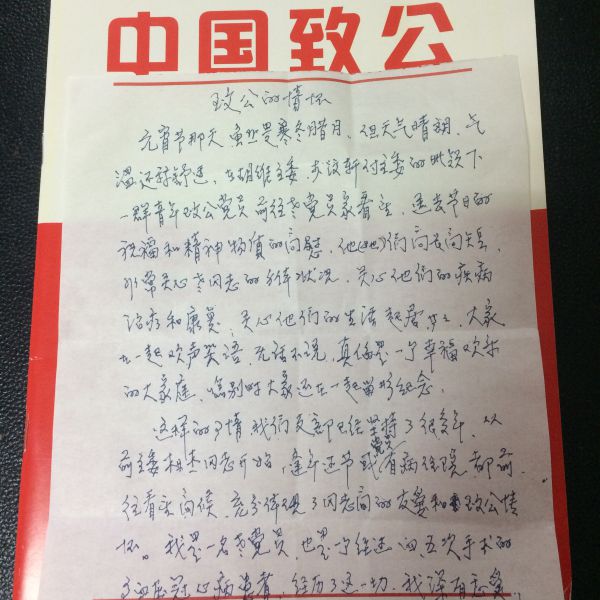 中国致公
致公的情怀
元宵节那天虽然是寒冬腊月,但天气晴朗,气
温还算舒适,在胡维主委,
一群青年致公党员前往老党员家看望,送去节日的
祝福和精神物质的问慰,他(她)们问长问短,
非常关心老同志的身体状况,关心他们的疾病
治疗和康复,关心他们的生活起居等等,大家
在一起欢声笑语,无话不说,真像是一个幸福欢乐
的大家庭,临别时大家还在一起留影纪念。
这样的事情我们支部已经坚持了很多年,从
前主委 同志开始,逢年过节或党员有病住院,都前
往看望问候,充分体现了同志间的友爱和致公情
怀。我是一名老党员,也是一个经过四五次手术的
冠心病患者,经历了这一切,我深有感受